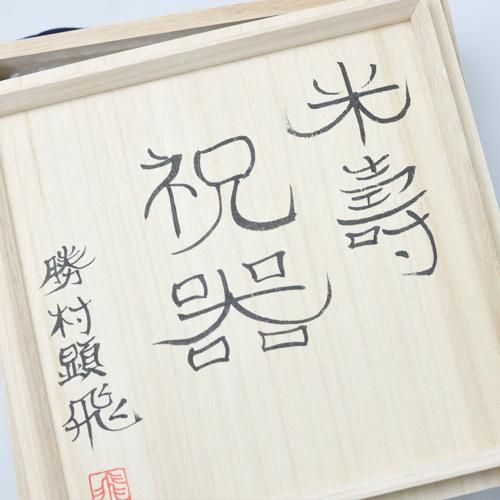 米壽
祝器
勝村顕飛